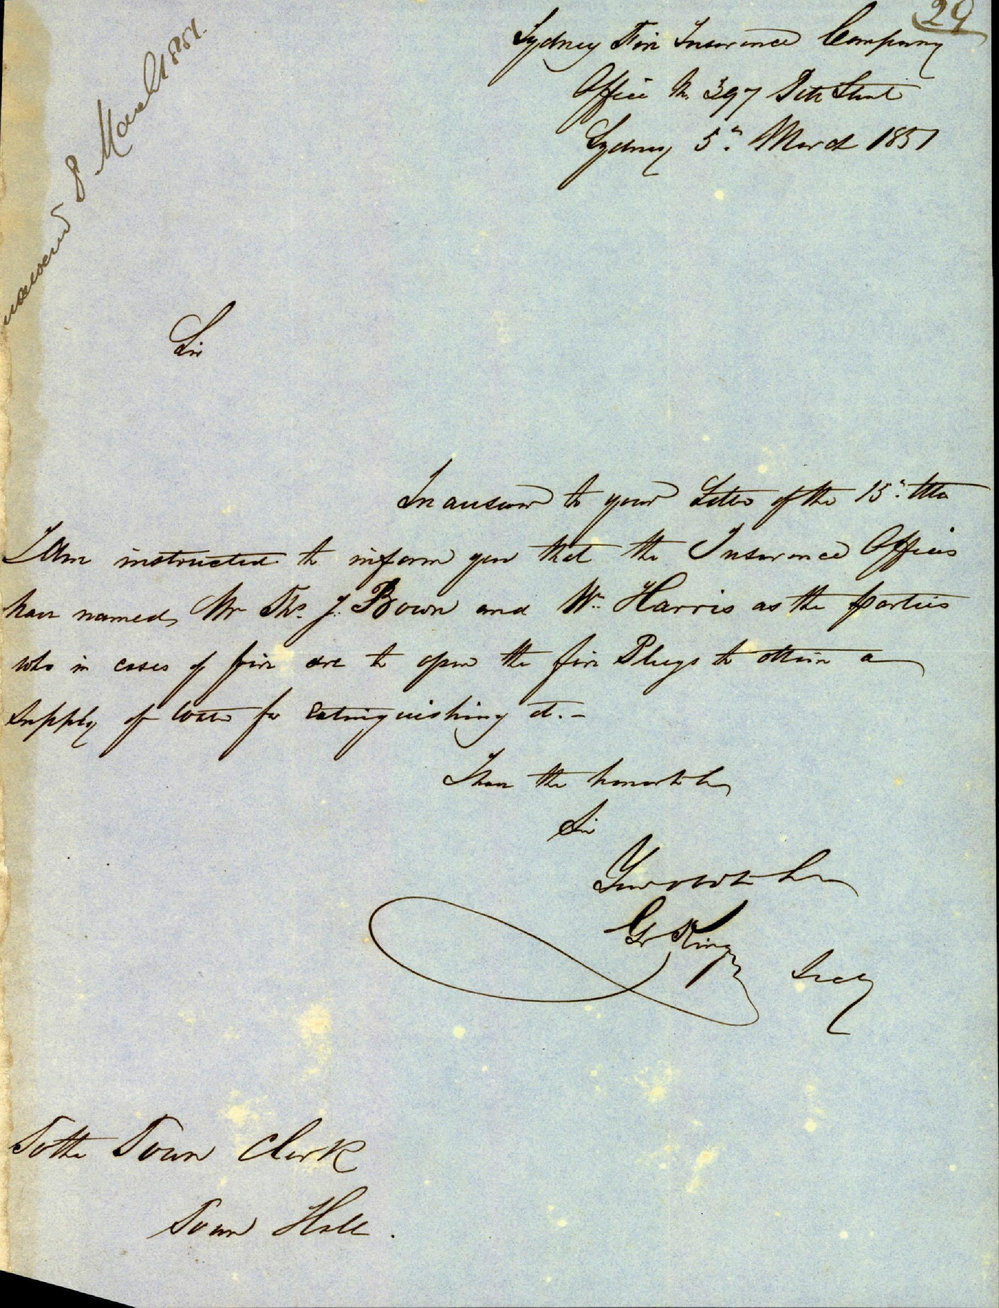 29
Sydney Fire Insurance Company
Office No 397 Pitt Street
Sydney 5th March 1851
Answered 8 March 1851.
Sir
In answer to your Letter of the 15th Ulto
I am instructed to inform you that the Insurance Offices
have named, Mr Thos. J. Bown and Wm Harris as the parties
who in cases of fire are to open the fire Plugs to obtain a
Supply of water for extinguishing it.-
I have the honor to be
Sir
Your obt Ser
Go King
Secy
To the Town Clerk
Town Hall.